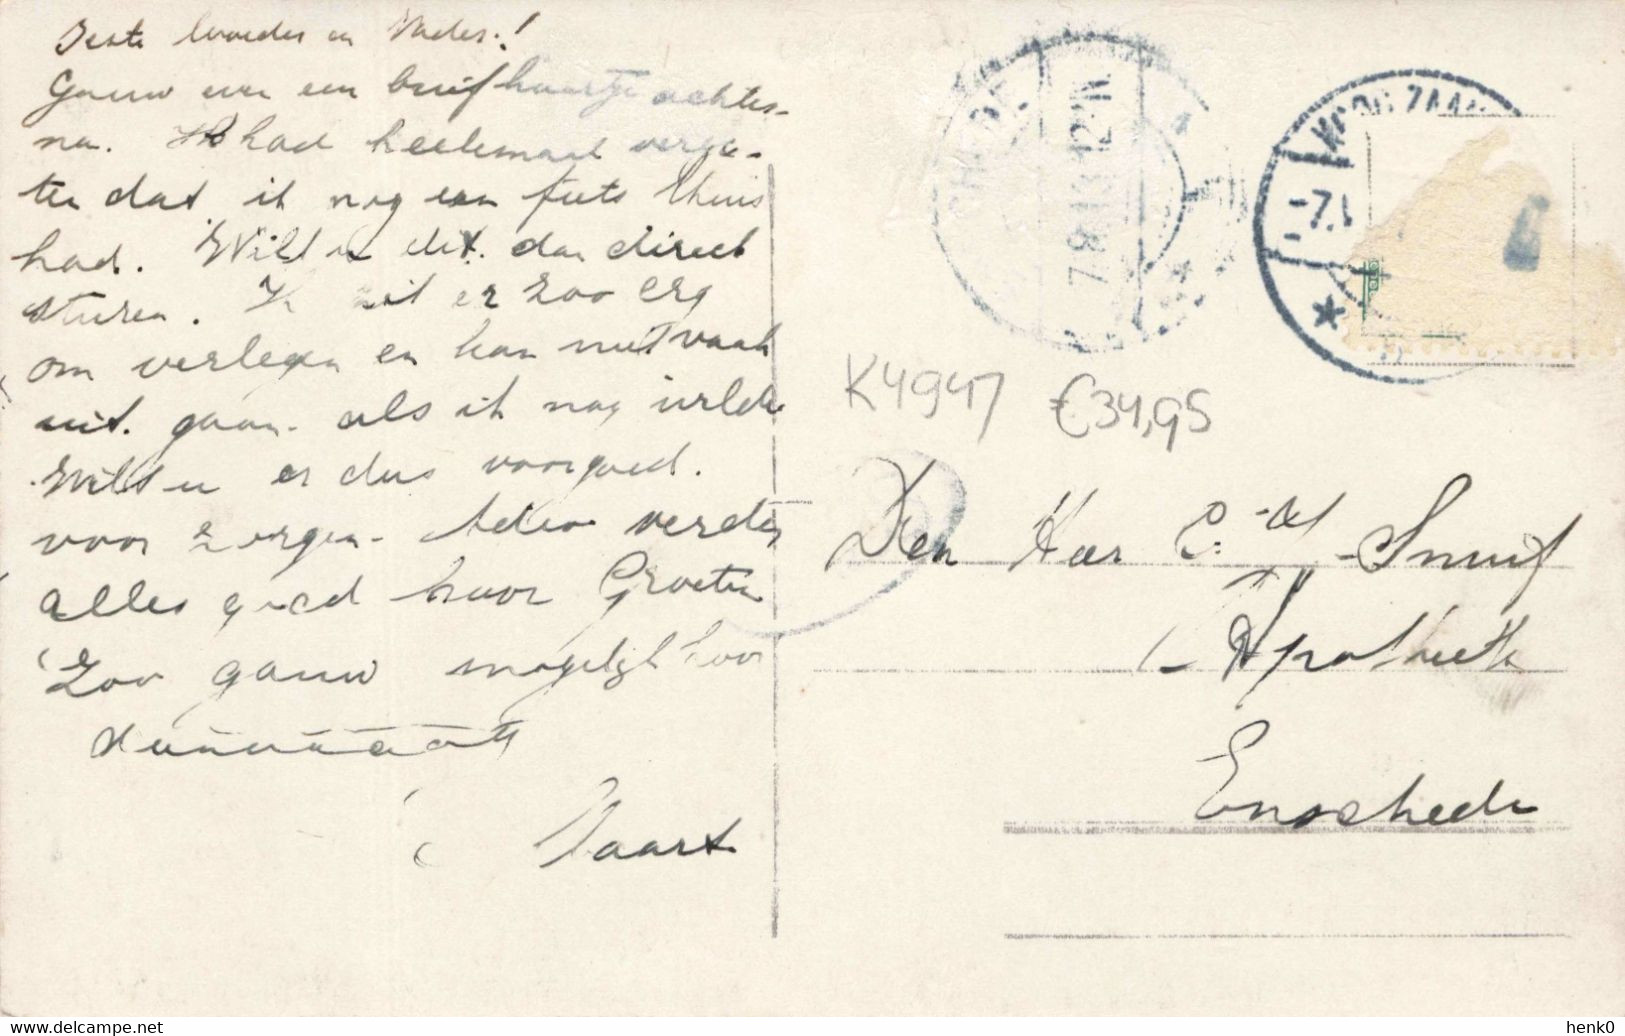 Beste Moeder en Vader.!
Gauw even een briefkaartje achter-
na. Ik had heelemaal verge-
ten dat ik nog een fiets thuis
had. Wilt u die dan direct
sturen. Ik zit er zoo erg
om verlegen en kan niet vaak
uit gaan. als ik nog wilde
Wilt u er dus voorgoed.
voor zorgen. Adieu verder
alles goed hoor Groeten
Zoo gauw mogelijk hoor
Maart
Den Heer C. Snuif
Apotheek
Enschede
K4947 €34,95
7.8.13.12-1N
KOOG ZAAN
-7.
delcampe.net
henk0